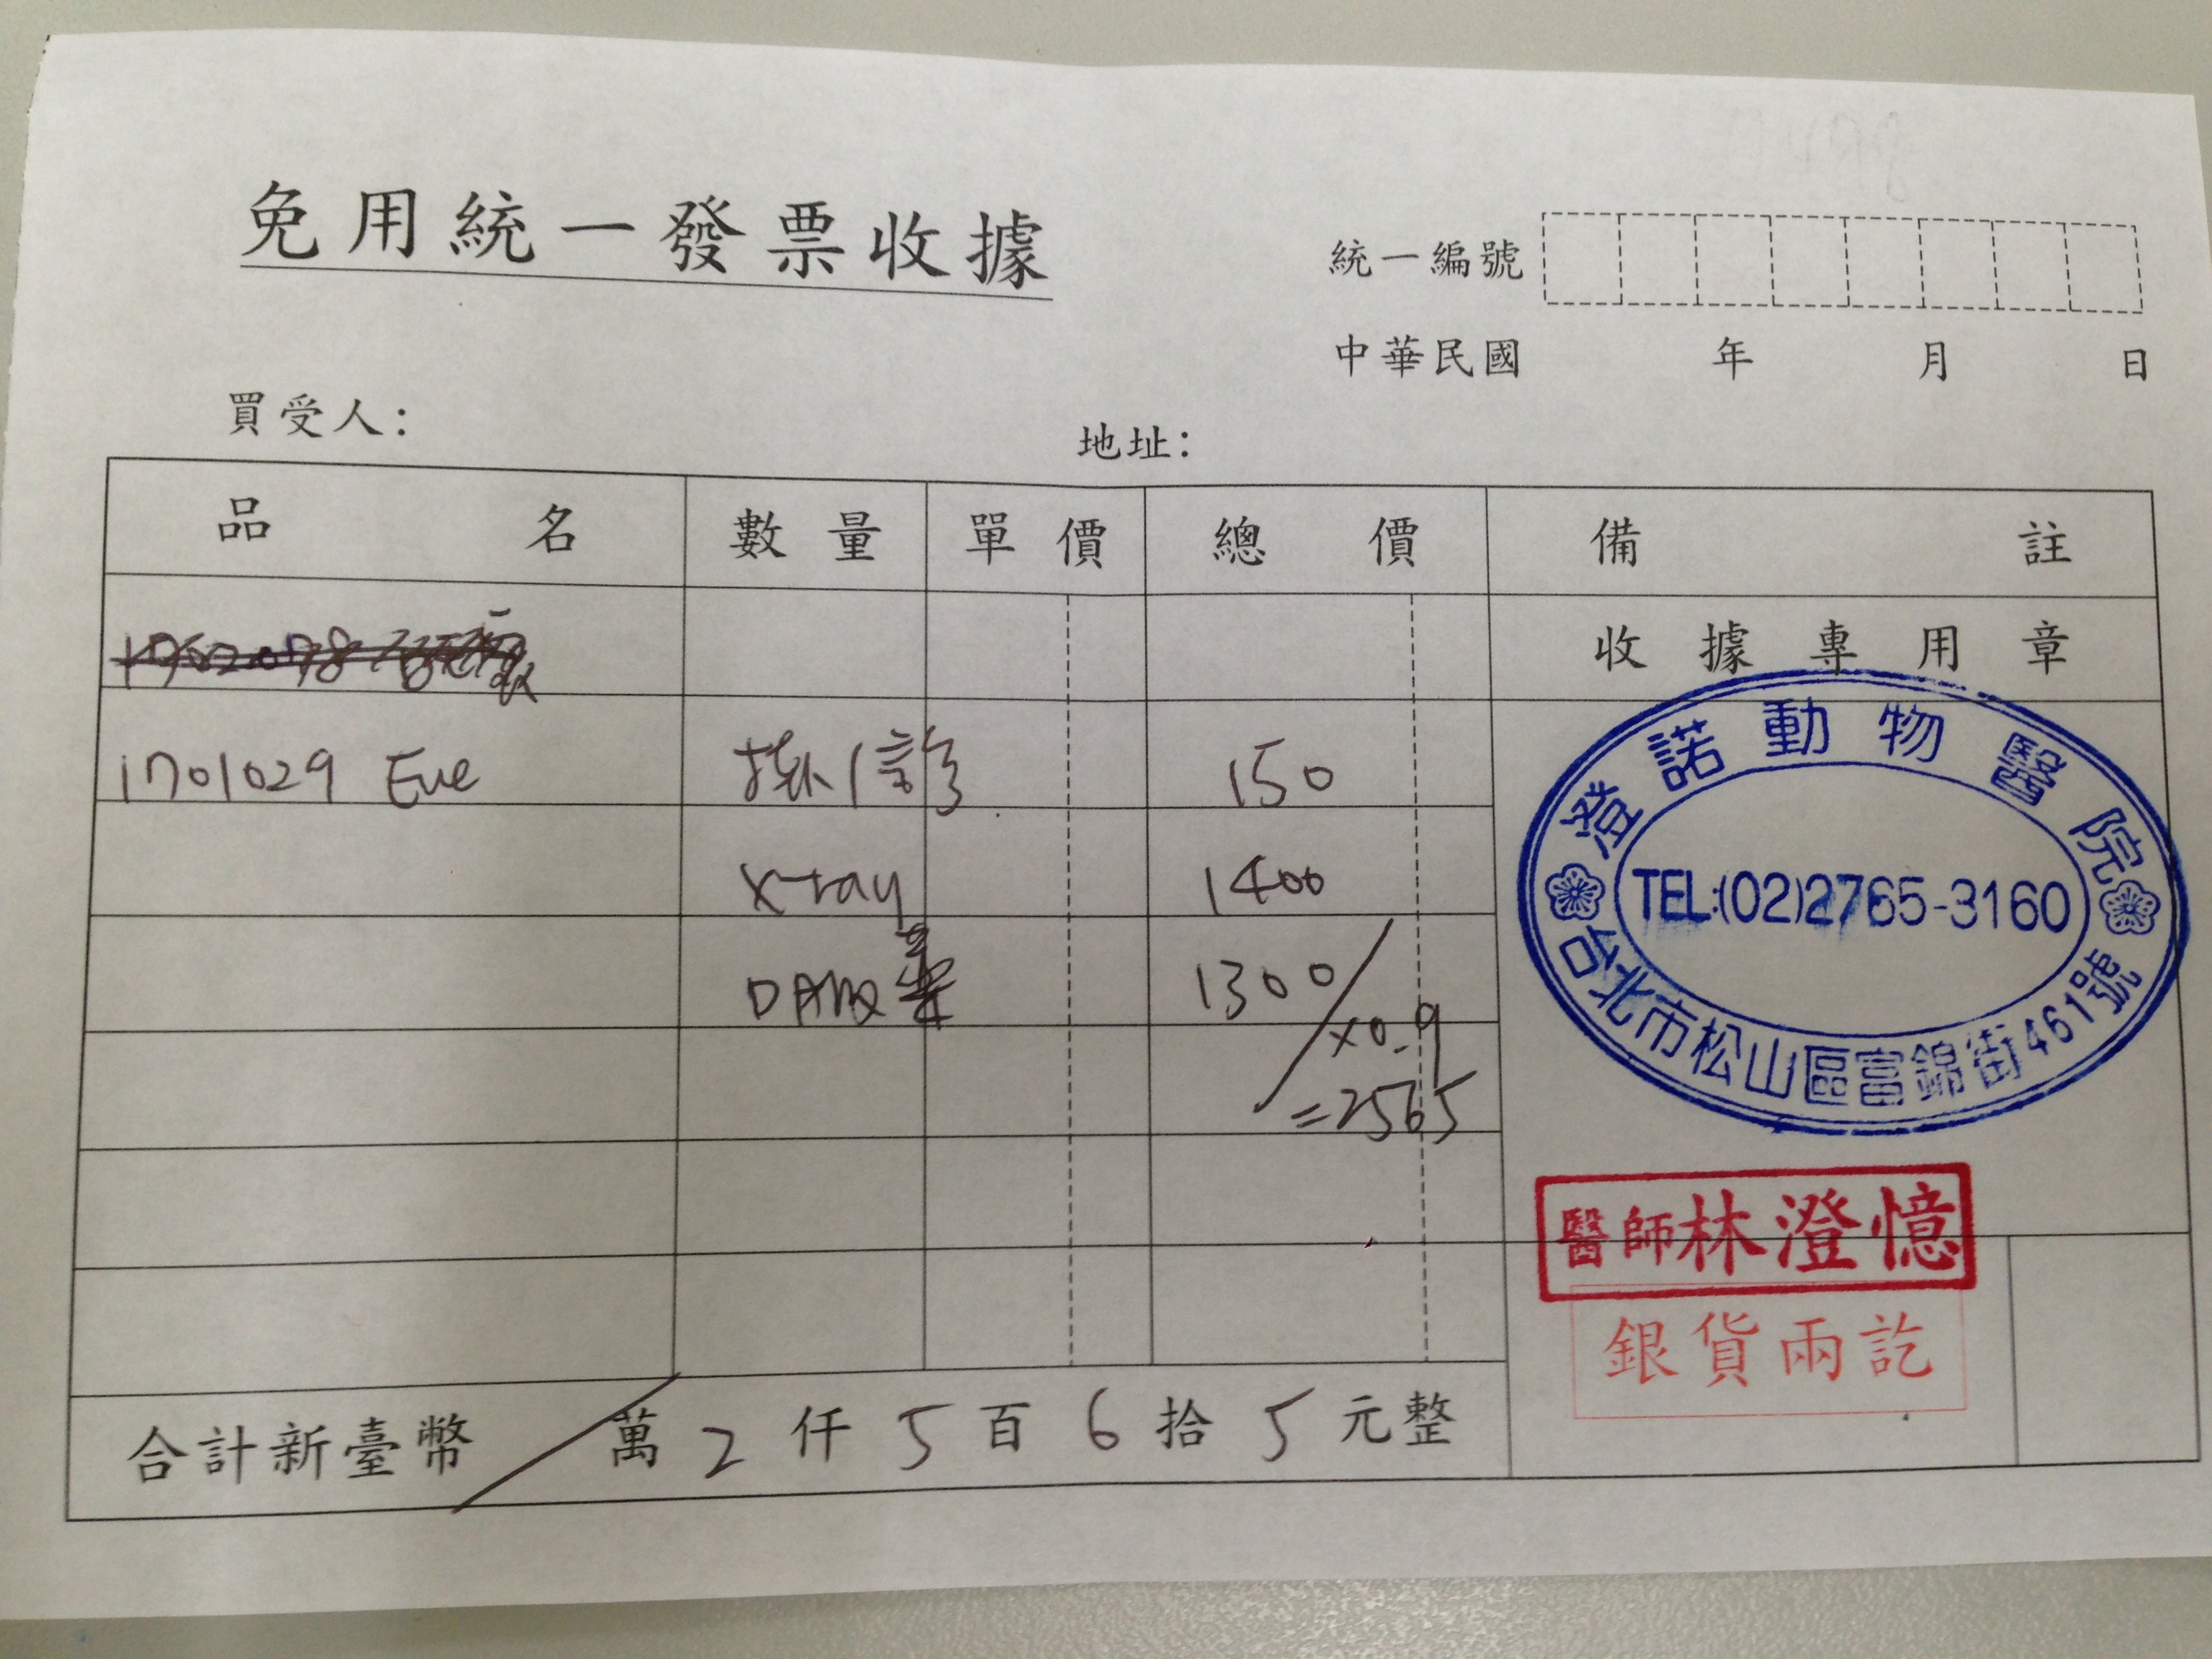 免用統一發票收據
統一編號
中華民國 年 月 日
買受人：
地址：
品名 數量 單價 總價 備註
收據專用章
1701029 Eve 掛1診 150
X-ray 1400
1300
×0.9
=2565
澄諾動物醫院
TEL:(02)2765-3160
台北市松山區富錦街461號
醫師林澄憶
銀貨兩訖
合計新臺幣 萬 2 仟 5 百 6 拾 5 元整